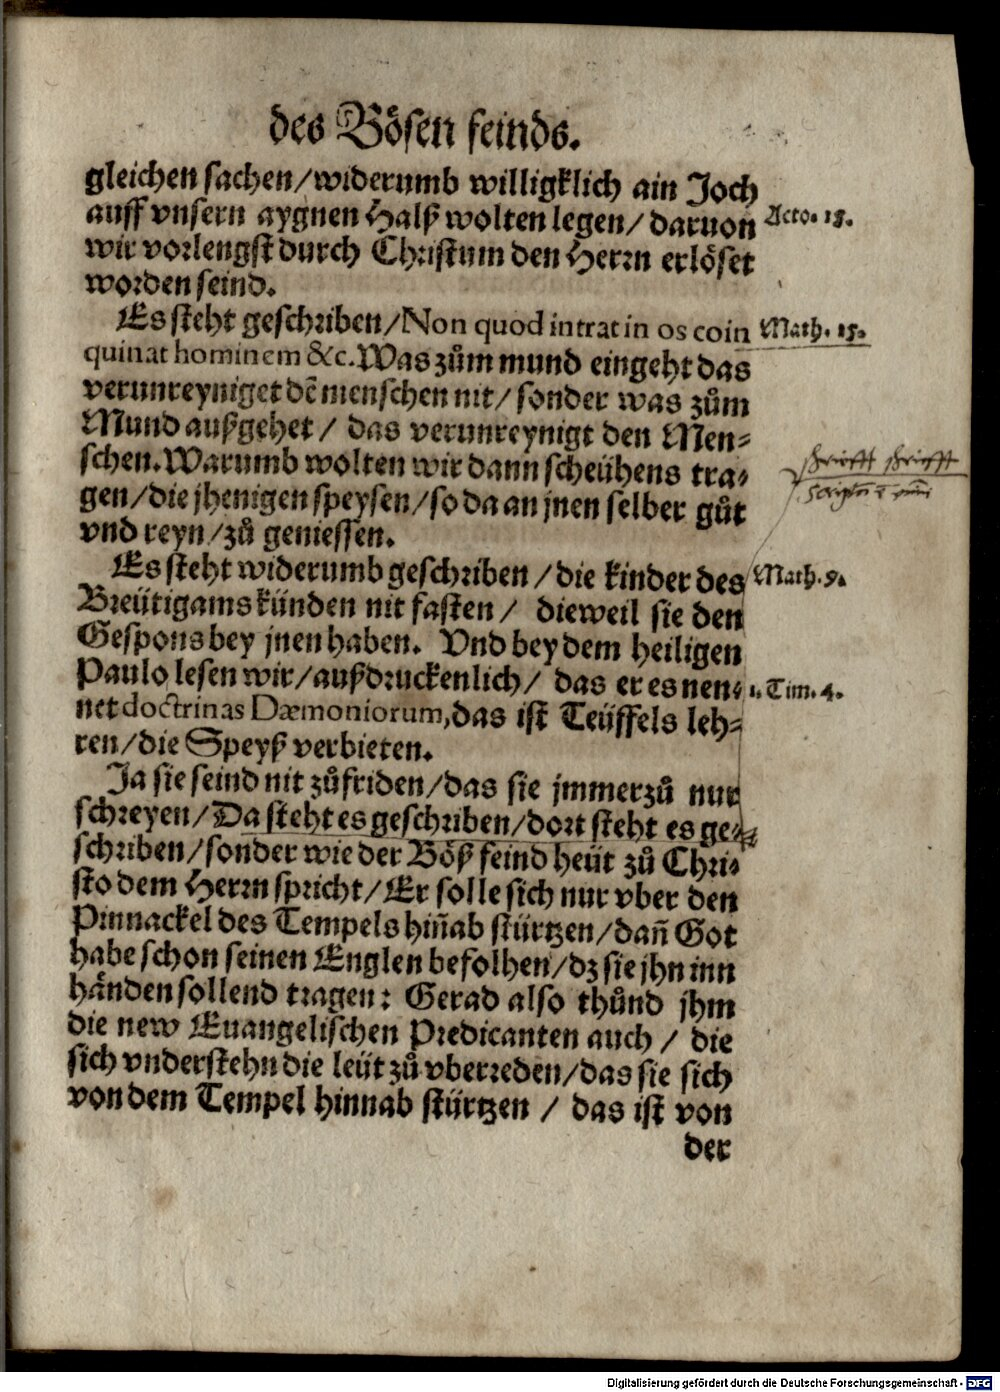 des Bösen feinds.
gleichen sachen/widerumb willigklich ain Joch
auff vnsern aygnen Halß wolten legen/ daruon
Acto. 15.
wir vorlengst durch Christum den Herrn erlöset
worden seind.
Es steht geschriben/Non quod intrat in os coin
Math. 15.
quinat hominem &c. Was zům mund eingeht das
verunreyniget dē menschen nit/ sonder was zům
Mund außgehet/ das verunreynigt den Men⸗
schen. Warumb wolten wir dann scheühens tra⸗
gen/die jhenigen speysen/so da an jnen selber gůt
vnd reyn/zů geniessen.
Es steht widerumb geschriben/die kinder des
Math. 9.
Breütigams künden nit fasten/ dieweil sie den
Gespons bey jnen haben. Vnd bey dem heiligen
Paulo lesen wir/außdruckenlich/ das er es nen⸗
1. Tim. 4.
net doctrinas Dæmoniorum, das ist Teüffels leh⸗
ren/die Speyß verbieten.
Ja sie seind nit zůfriden/das sie jmmerzů nur
schreyen/Da steht es geschriben/dort steht es ge⸗
schriben/sonder wie der Böß feind heüt zů Chri⸗
sto dem Herrn spricht/Er solle sich nur vber den
Pinnackel des Tempels hiñab stürtzen/dañ Got
habe schon seinen Englen befolhen/dz sie jhn inn
händen sollend tragen: Gerad also thůnd jhm
die new Euangelischen Predicanten auch/ die
sich vnderstehn die leüt zů vberreden/das sie sich
von dem Tempel hinnab stürtzen/ das ist von
der
Digitalisierung gefördert durch die Deutsche Forschungsgemeinschaft - DFG